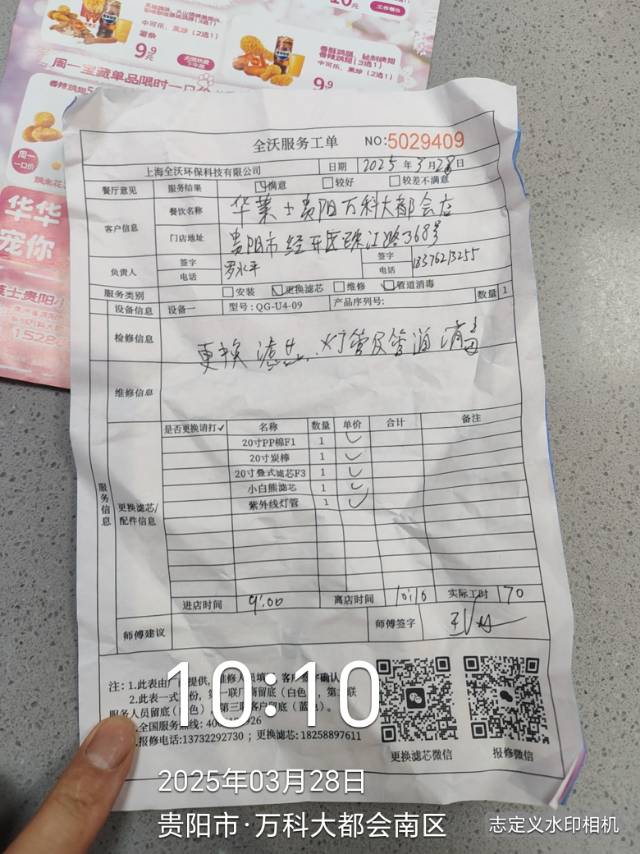 中可乐、美珍(2选1)
9.9元
9.9
周一宝藏单品限时一口价
周一
一口价
华华
宠你
全沃服务工单 NO:5029409
上海全沃环保科技有限公司 日期 2025年3月28日
餐厅意见 服务结果 ☑满意 □较好 □较差不满意
客户信息 餐饮名称 华莱士贵阳万科大都会店
门店地址 贵阳市经开区珠江路368号
负责人 签字 电话 罗永平 签字 电话 18376213255
服务类别 □安装 ☑更换滤芯 □维修 ☑管道消毒 数量 1
设备信息 设备一 型号:QG-U4-09 产品序列号:
检修信息 更换滤芯、灯管及管道消毒
维修信息
服务信息 更换滤芯/配件信息
是否更换请打✓ 名称 数量 单价 合计 备注
20寸PP棉F1 1 ✓
20寸炭棒 1 ✓
20寸叠式滤芯F3 1 ✓
小白熊滤芯 1 ✓
紫外线灯管 1 ✓
进店时间 9:00 离店时间 10:10 实际工时 70
师傅建议 师傅签字
注:1.此表由厂
提供,
客户签字确认
2.此表一式
份,第一联厂商留底(白色
服务人员留底(
色)
第三联客户留底(蓝色)。
全国服务热线:40
报修电话:13732292730;更换滤芯:18258897611
更换滤芯微信 报修微信
10:10
2025年03月28日
贵阳市·万科大都会南区
志定义水印相机